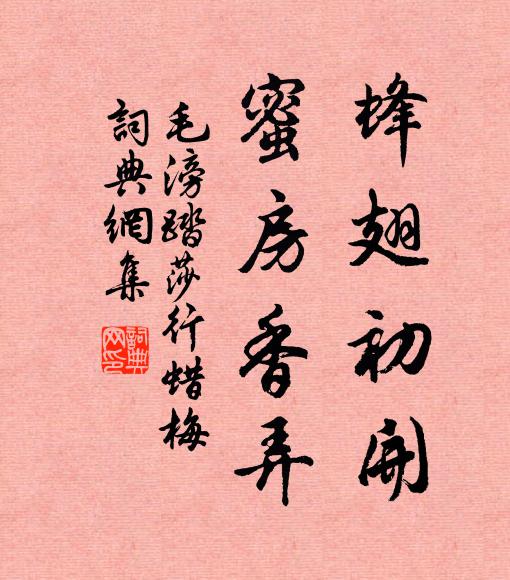 蜂翅初開
蜜房香弄
毛滂踏莎行蜡梅
詞典網集
詞典網印